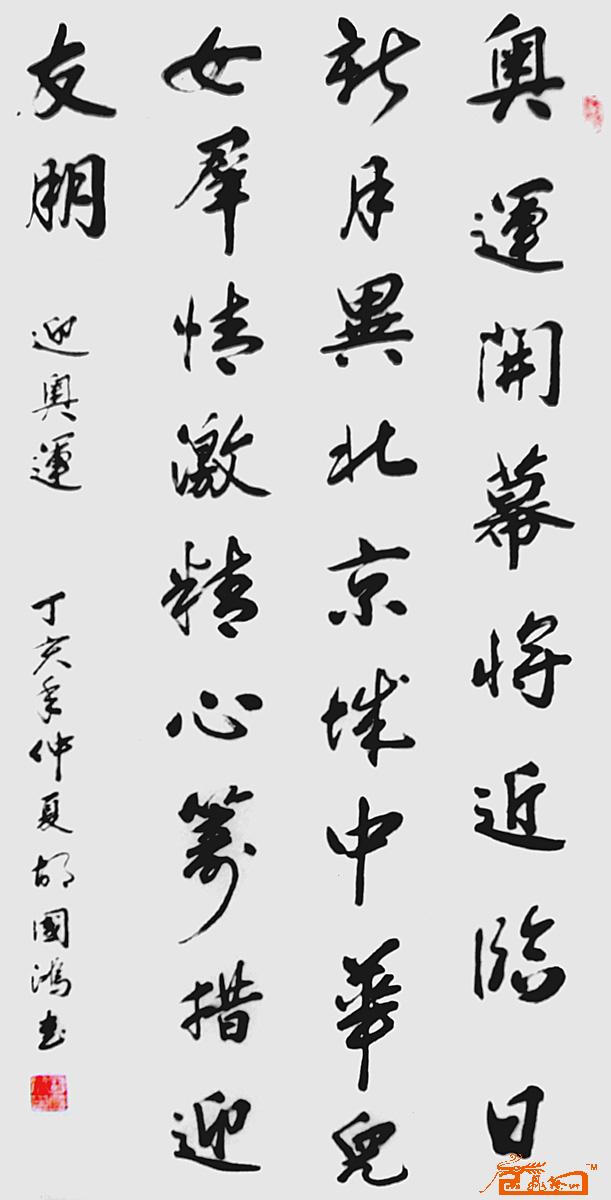 奧運開幕將近臨日
新月異北京城中華兒
女羣情激精心籌措迎
友朋
迎奧運
丁亥年仲夏胡國鴻書